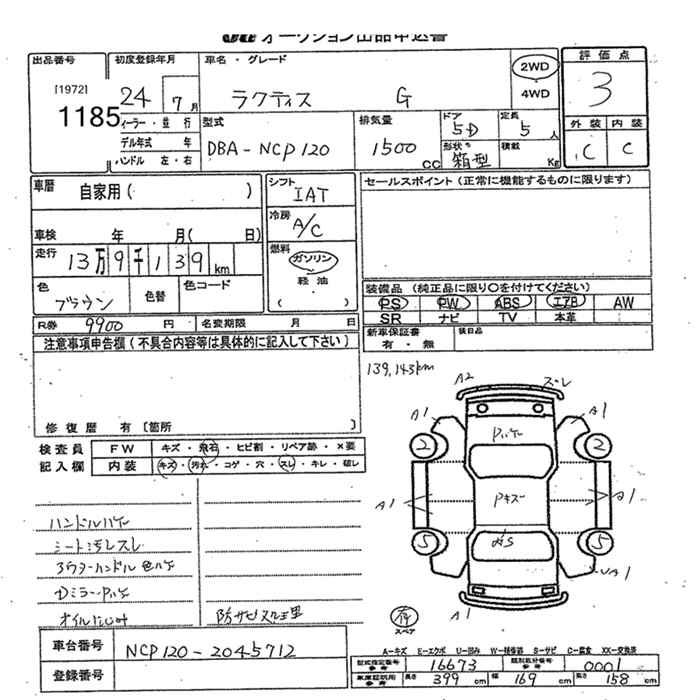 オークション出品申込書
出品番号 初度登録年月 車名・グレード 2WD 4WD 評価点
[1972] 1185 24 7月 ラクティス G 3
ィーラー・並行 型式 排気量 ドア 5D 定員 5人 外装 内装
デル年式 年 DBA-NCP120 1500cc 形状 箱型 積載 Kg C C
ハンドル 左・右
車暦 自家用( ) シフト IAT セールスポイント(正常に機能するものに限ります)
冷房 A/C
車検 年 月( 日)
走行 13万9千139km 燃料 ガソリン 軽油 ( )
色 ブラウン 色替 色コード
装備品(純正品に限り○を付けてください)
PS PW ABS エアB AW
SR ナビ TV 本革
R券 9900円 名変期限 月 日 新車保証書 有・無 後日品
注意事項申告欄(不具合内容等は具体的に記入して下さい)
139,143km
A2 ズレ
A1 A1
Pハゲ
2 2
修復歴 有〔箇所 〕
検査員 FW キズ・飛石・ヒビ割・リペア跡・×要
記入欄 内装 キズ・汚れ・コゲ・穴・スレ・キレ・破レ
A1 Pキズ A1
ハンドルハゲ
シート汚レスレ
5 5
Dミラーハゲ
A1
防サビ処理
スペア
車台番号 NCP120-2045712
A-キズ E-エクボ U-凹み W-補修跡 S-サビ C-腐食 XX-交換済
型式指定番号 参考 16673 類別区分番号 参考 0001
登録番号
車庫証明用 参考 長さ 399cm 幅 169cm 高さ 158cm